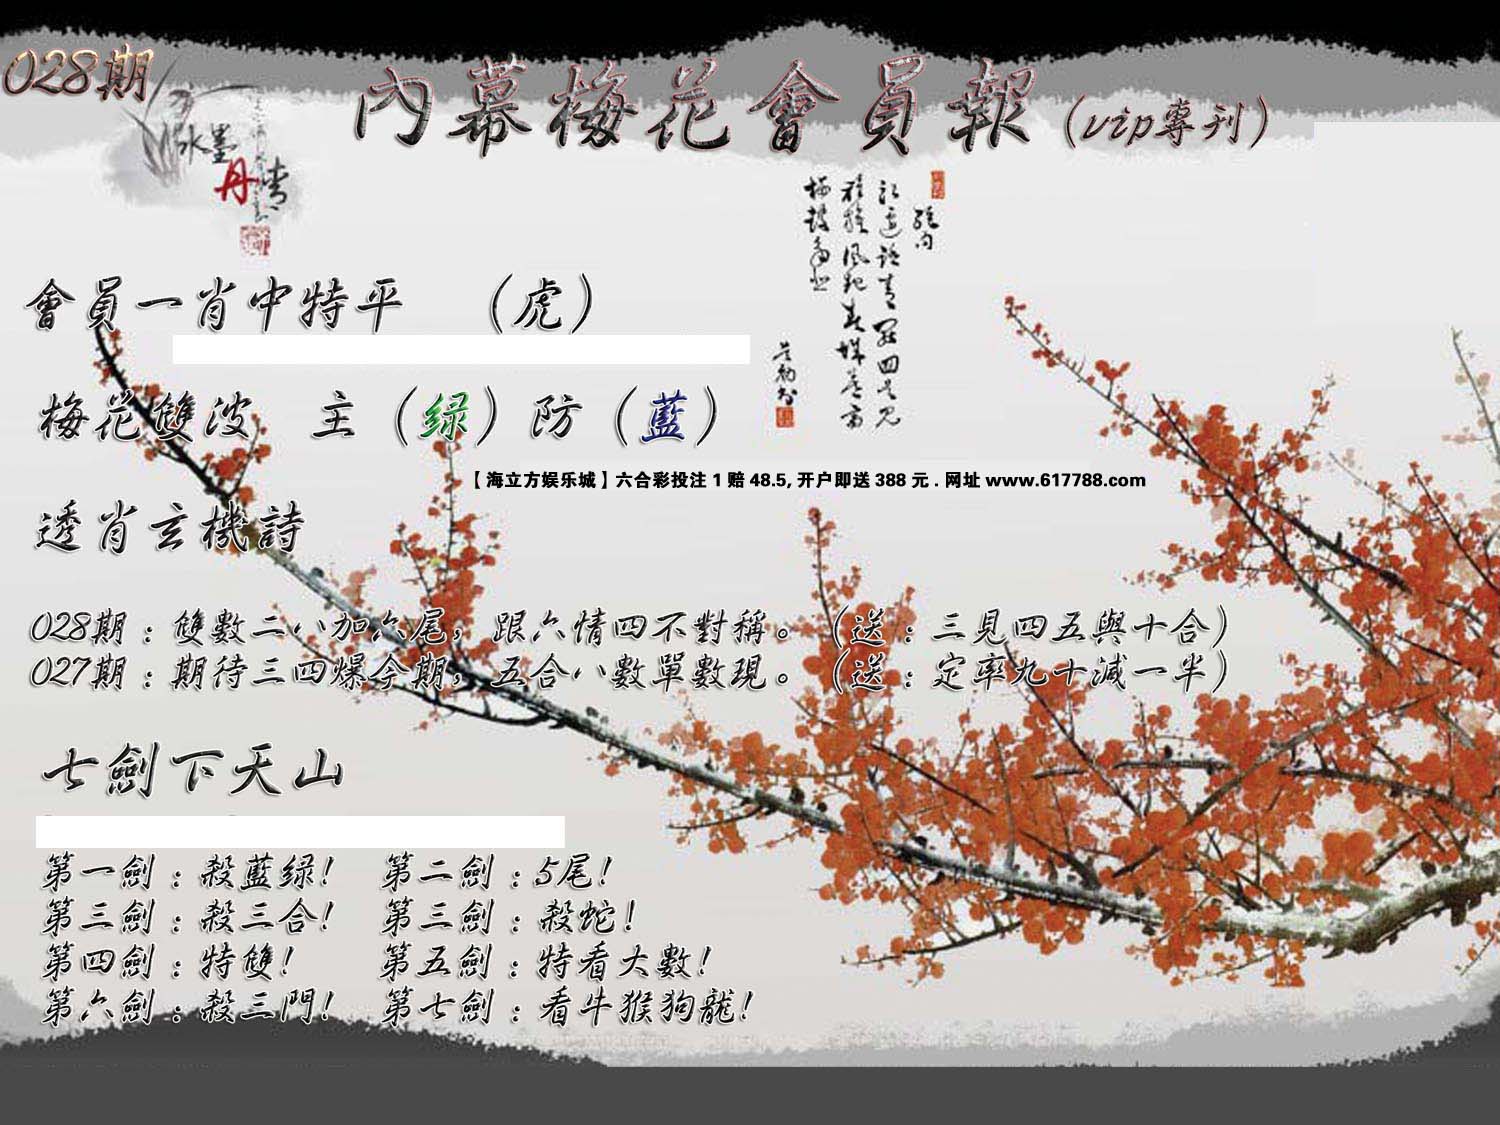 028期
內幕梅花會員報(vip專刊)
水墨
丹青
會員一肖中特平 (虎)
梅花雙波 主(绿)防(藍)
【海立方娱乐城】六合彩投注1赔48.5,开户即送388元.网址www.617788.com
透肖玄機詩
028期:雙數二八加六尾,跟六情四不對稱。(送:三見四五與十合)
027期:期待三四爆今期,五合八數單數現。(送:定率九十減一半)
七劍下天山
第一劍:殺藍绿! 第二劍:5尾!
第三劍:殺三合! 第三劍:殺蛇!
第四劍:特雙! 第五劍:特看大數!
第六劍:殺三門! 第七劍:看牛猴狗龍!